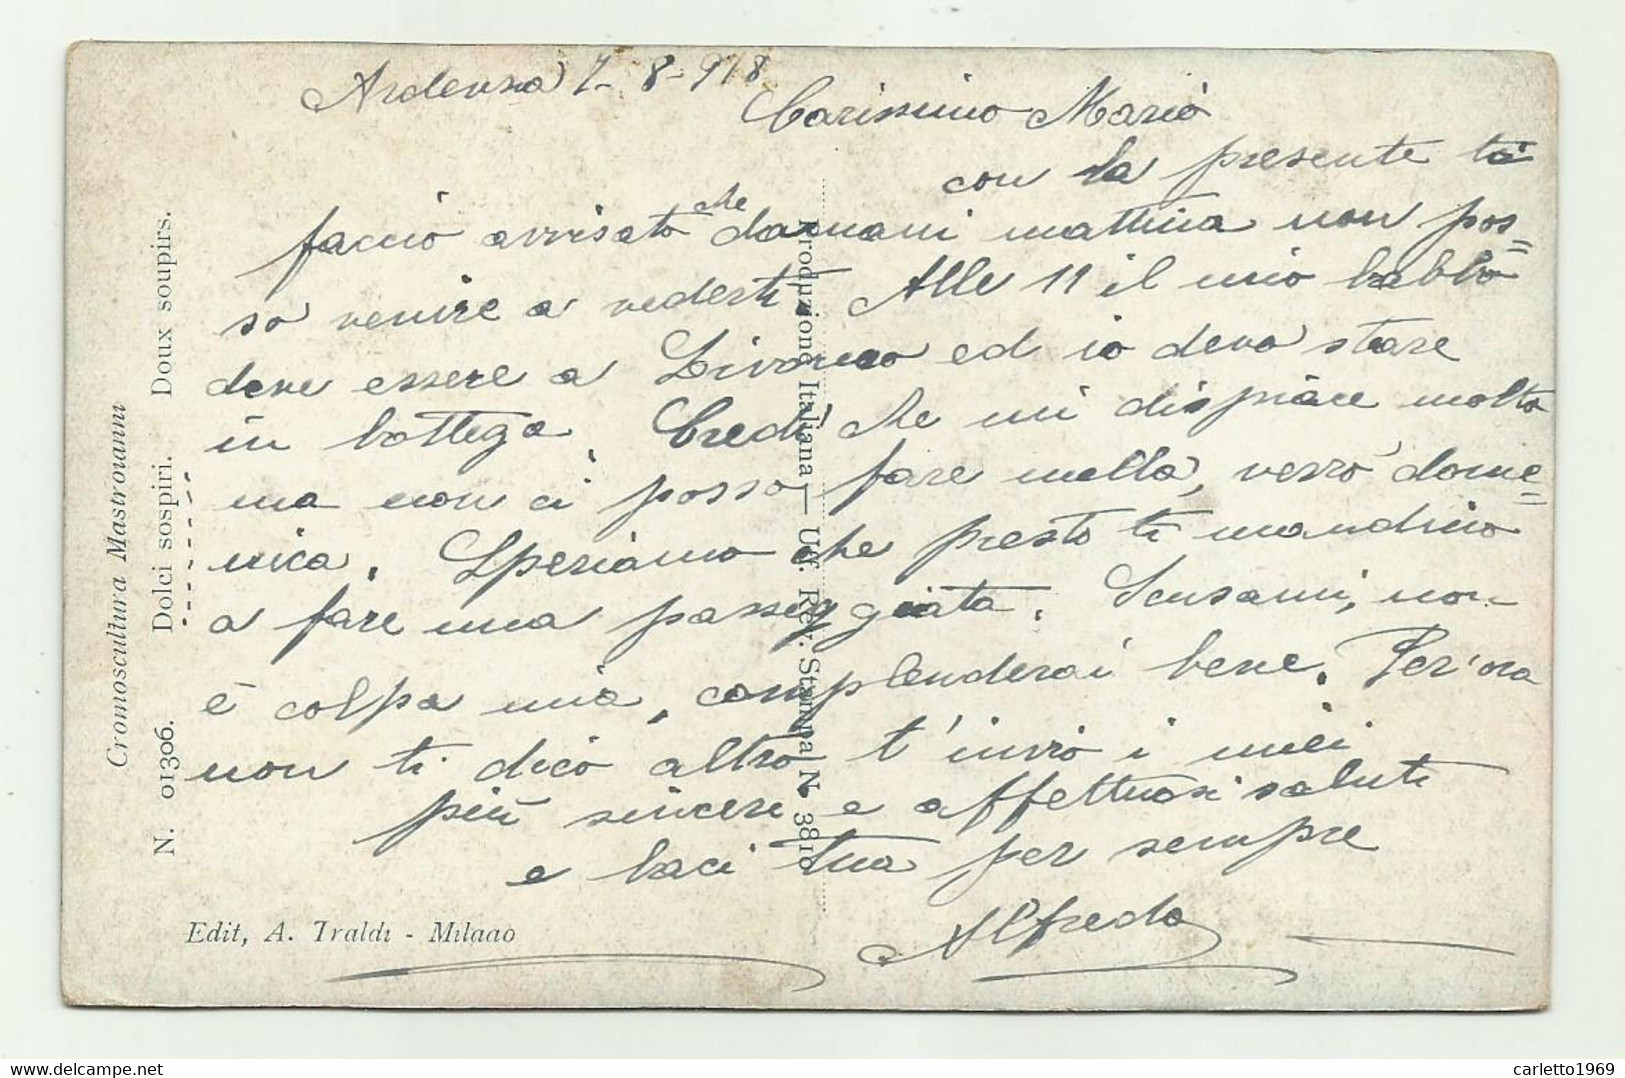 Ardenza 7-8-918
Carissimo Mario
con la presente ti
faccio avvisato che domani mattina non pos=
so venire a vederti. Alle 11 il mio babbo
deve essere a Livorno ed io devo stare
in bottega. Credi che mi dispiace molto
ma non ci posso fare nulla, verrò dome=
nica. Speriamo che presto ti mandino
a fare una passeggiata. Scusami, non
è colpa mia, comprenderai bene. Per'ora
non ti dico altro t'invio i miei
più sinceri e affettuosi saluti
e baci tua per sempre
Alfreda
Cromoscultura Mastroianni
N. 01306. Dolci sospiri. Doux soupirs.
Produzione Italiana — Uff. Rev. Stampa N. 3810
Edit, A. Traldi - Milaao
carletto1969